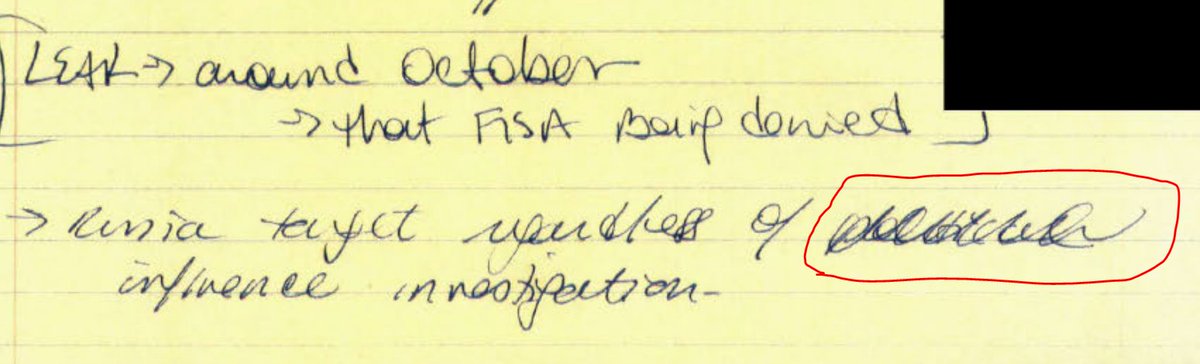 [LEAK → around October
→ that FISA Being denied ]
→ Russia target regardless of
influence investigation-